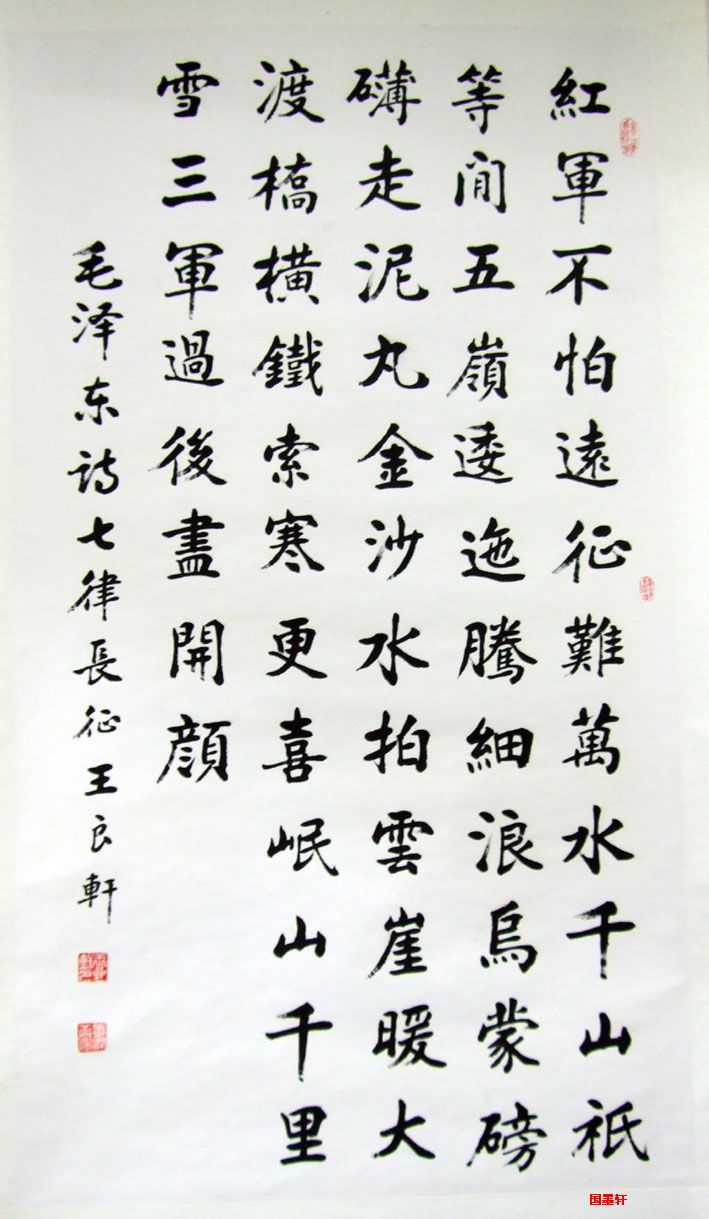 紅軍不怕遠征難萬水千山祇
等閒五嶺逶迤騰細浪烏蒙磅
礴走泥丸金沙水拍雲崖暖大
渡橋橫鐵索寒更喜岷山千里
雪三軍過後盡開顔
毛泽东诗七律長征王良軒
国墨轩